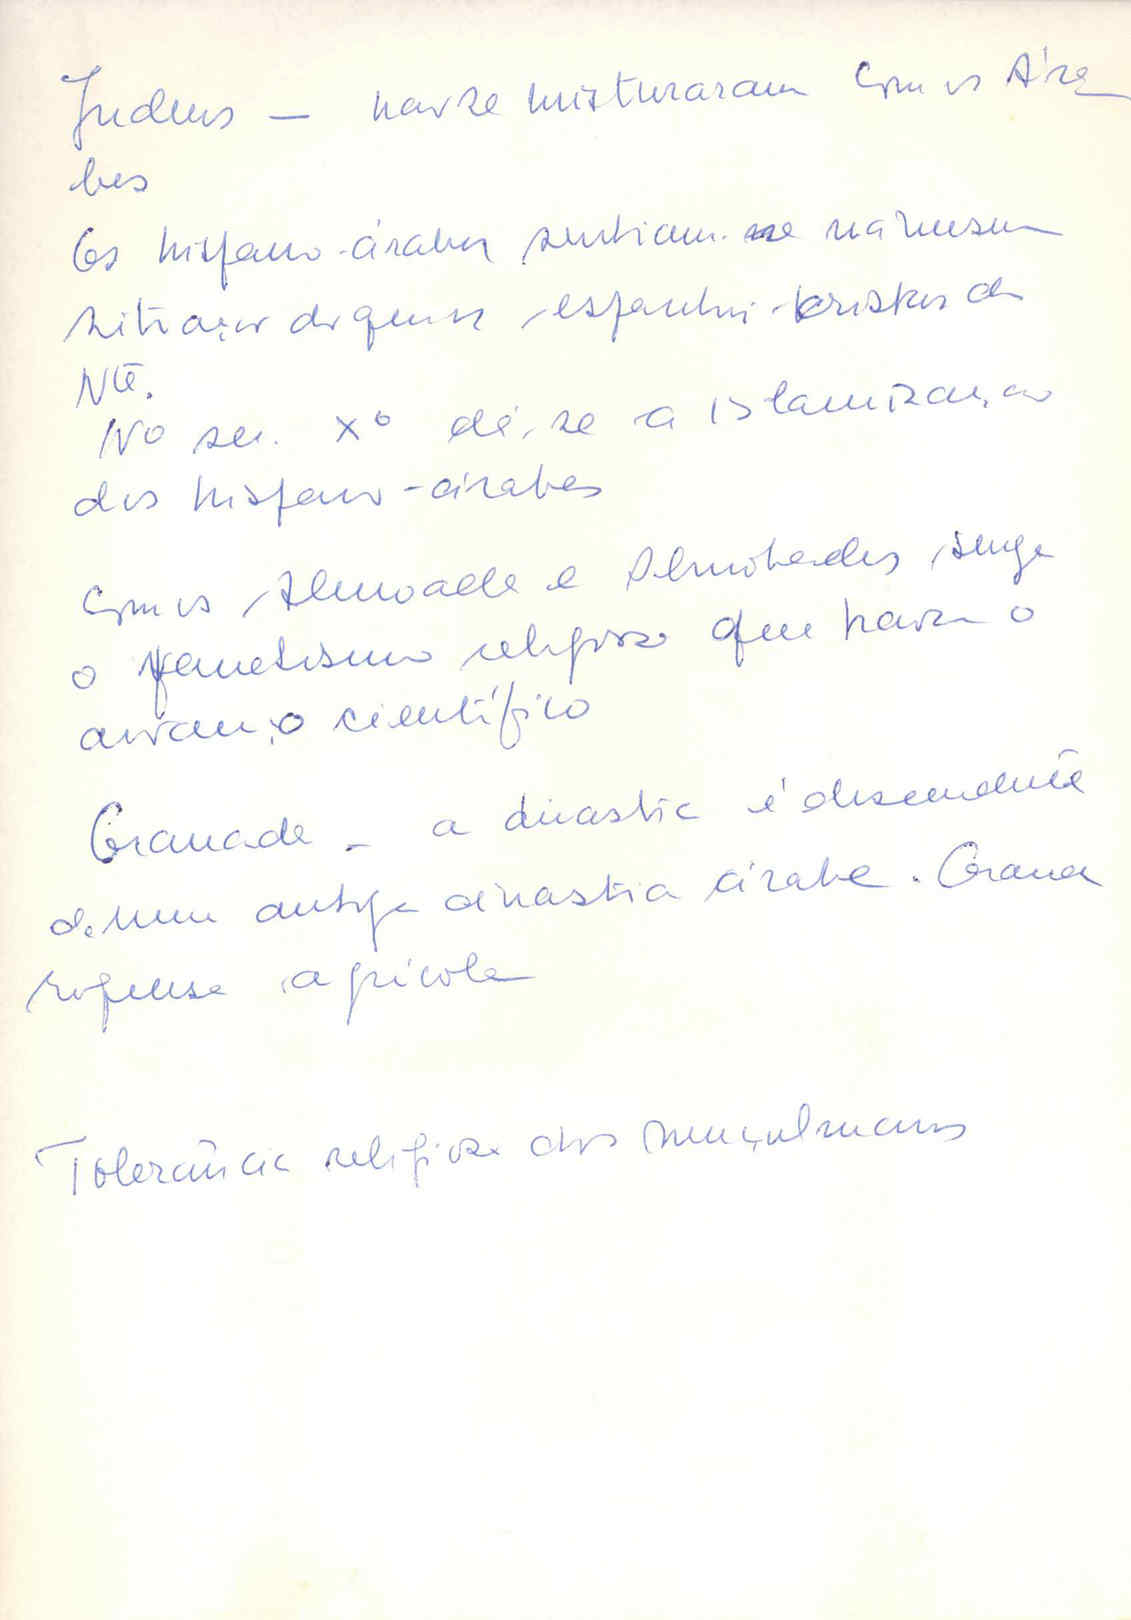 Judeus — não se misturaram com os Ára
bes
Os hispano-árabes sentiam-se na mesma
situação do que os espanhóis-cristãos do
Nte.
No sec. Xº dá-se a islamização
dos hispano-árabes
Com os Almoade e Almohades, surge
o fanatismo religioso que trava o
avanço científico
Granada - a dinastia é descendente
de uma antiga dinastia árabe. Grana
agrícola
Tolerância religiosa dos muçulmanos